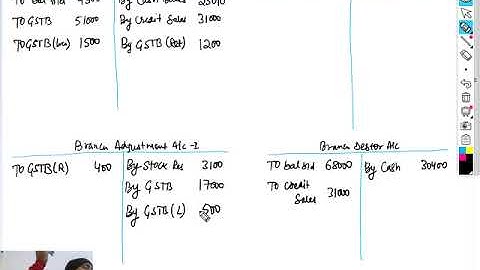 To bal b/d 9300 By Cash Sales 23010
To GSTB 51000 By Credit Sales 31000
To GSTB(Loa) 1500 By GSTB (Ret) 1200
Branch Adjustment A/c - I
To GSTB(R) 400 By Stock Res 3100
By GSTB 17000
By GSTB(L) 500
Branch Debtor A/c
To bal b/d 68000 By Cash 30400
To credit
Sales 31000